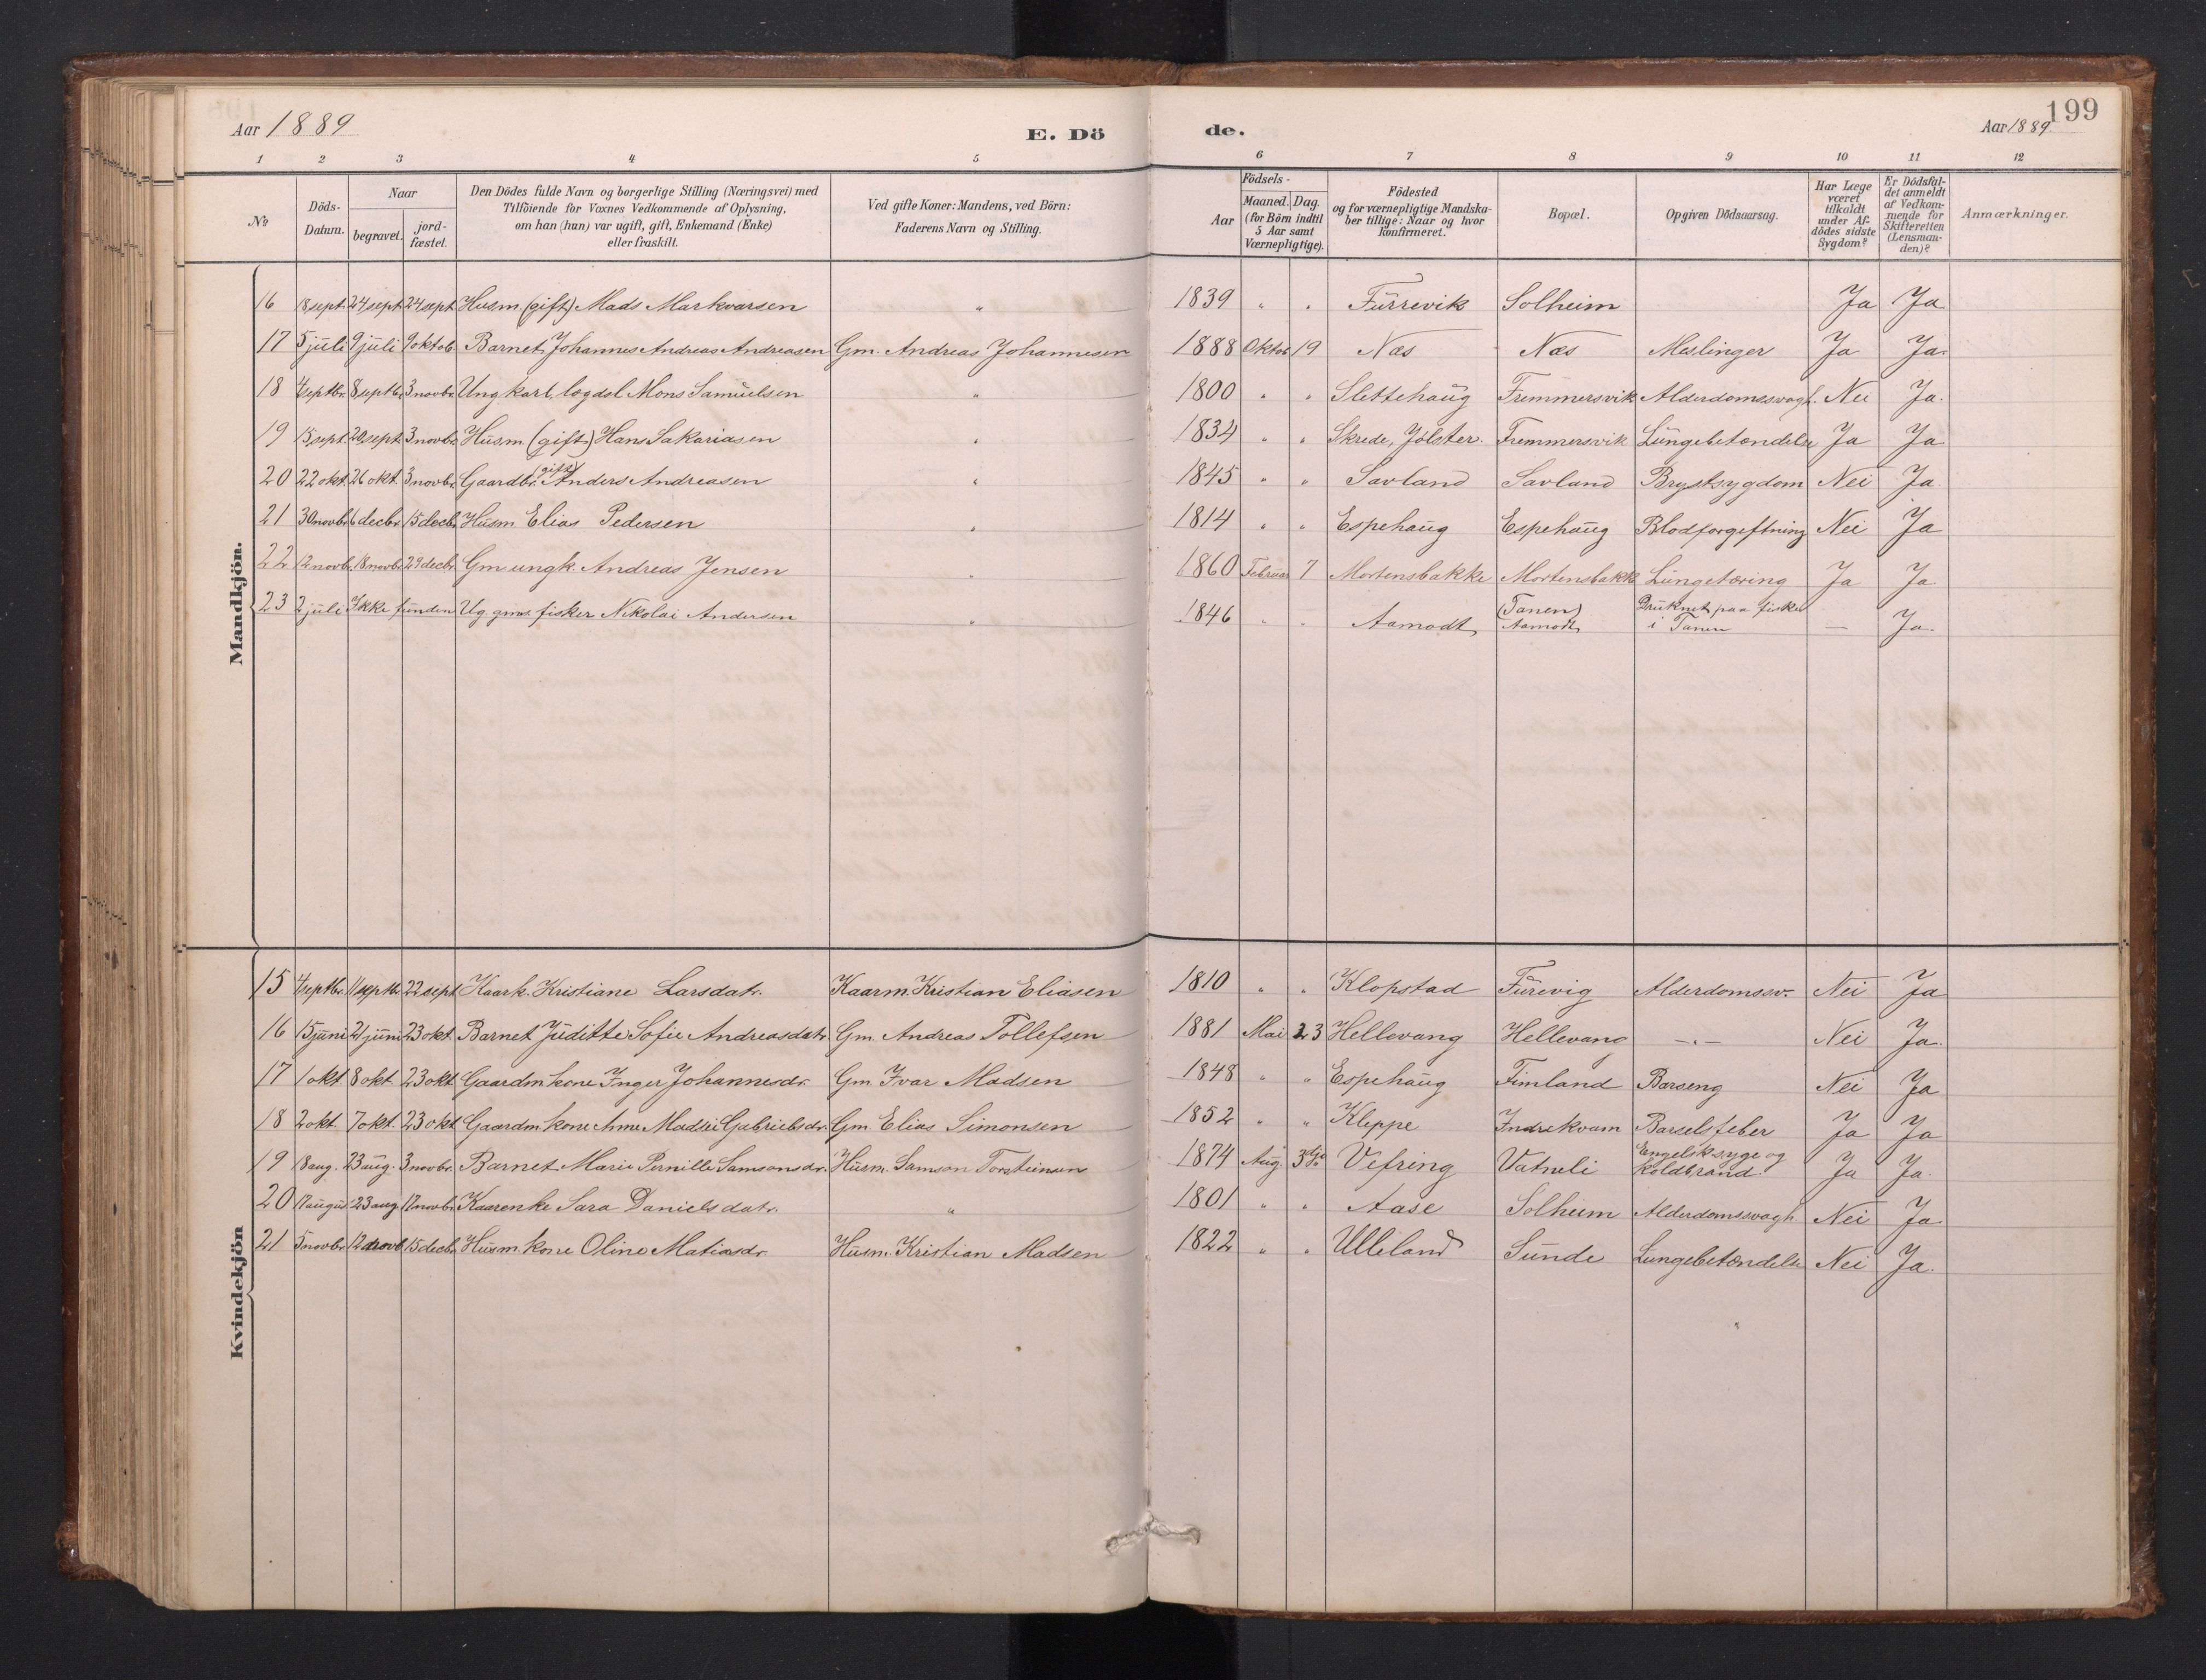 Aar 1889
E. Dö
de.
199
Aar 1889
1 2 3 4 5 6 7 8 9 10 11 12
№
Döds-Datum.
Naar
begravet.
jord-fæstet.
Den Dödes fulde Navn og borgerlige Stilling (Næringsvei) med
Tilföiende for Voxnes Vedkommende af Oplysning,
om han (hun) var ugift, gift, Enkemand (Enke)
eller fraskilt.
Ved gifte Koner: Mandens, ved Börn:
Faderens Navn og Stilling.
Födsels-
Aar
Maaned. Dag.
(for Börn indtil
5 Aar samt
Værnepligtige).
Födested
og for værnepligtige Mandska-
ber tillige: Naar og hvor
Konfirmeret.
Bopæl.
Opgiven Dödsaarsag.
Har Læge
været
tilkaldt
under Af-
dödes sidste
Sygdom?
Er Dödsfal-
det anmeldt
af Vedkom-
mende for
Skifteretten
(Lensman-
den)?
Anmærkninger.
Mandkjön.
16 18 sept. 24 sept 24 sept Husm. (gift) Mads Markvarsen " 1839 " " Furrevik Solheim Ja Ja
17 5 juli 9 juli 9 oktob. Barnet Johannes Andreas Andreasen Gm. Andreas Johannesen 1888 Oktob 19 Næs Næs Meslinger Ja Ja.
18 4 septbr. 8 septb. 3 novbr. Ungkarl, logdsl Mons Samuelsen " 1800 " " Slettehaug Fremmersvik Alderdomssvagh. Nei Ja.
19 15 sept. 20 sept. 3 novbr. Husm. (gift) Hans Sakariasen " 1834 " " Skrede, Jölster. Fremmersvik Lungebetændelse Ja Ja
20 22 okt. 26 okt. 3 novbr. Gaardbr. (gift) Anders Andreasen " 1845 " " Savland Savland Brystsygdom Nei Ja
21 30 novbr. 6 decbr. 15 decbr. Husm. Elias Pedersen " 1814 " " Espehaug Espehaug Blodforgiftning Nei Ja
22 12 novb. 18 novb. 29 decbr. Gm ungk. Andreas Jensen " 1860 Februar 7 Mortensbakke Mortensbakk Lungetæring Ja Ja
23 2 juli Ikke funden Ug. gms. fisker Nikolai Andersen " 1846 " " Aamodt (Tanen) Aamodt Druknet paa fiske i Tanen — Ja.
Kvindekjön
15 4 septbr. 11 septbr. 22 sept Kaark. Kristiane Larsdatr. Kaarm. Kristian Eliasen 1810 " " Klopstad Furevig Alderdomssv. Nei Ja
16 15 juni 21 juni 23 okt. Barnet Juditte Sofie Andreasdatr. Gm. Andreas Tollefsen 1881 Mai 23 Hellevang Hellevang —"— Nei Ja.
17 1 okt. 8 okt. 23 okt Gaardm kone Inger Johannesdr. Gm. Ivar Madsen 1848 " " Espehaug Fimland Barseng Nei Ja
18 2 okt. 7 okt. 23 okt Gaardm. kone Ane Madsri Gabrielsdr. Gm Elias Simonsen 1852 " " Kleppe Indrekvam Barselsfeber Ja Ja
19 18 aug. 23 aug. 3 novbr. Barnet Marie Pernille Samsonsdr. Husm. Samson Torsteinsen 1874 Aug. Vefring Vatneli Engelsksyge og koldbrand. Ja Ja.
20 17 august 23 aug. 17 novbr. Kaarenke Sara Danielsdatr. " 1801 " " Aase Solheim Alderdomssvagh. Nei Ja
21 5 novbr. 12 novb. 15 decbr. Husm. kone Oline Matiasdr. Husm. Kristian Madsen 1822 " " Ulleland Sunde Lungebetændelse Nei Ja.